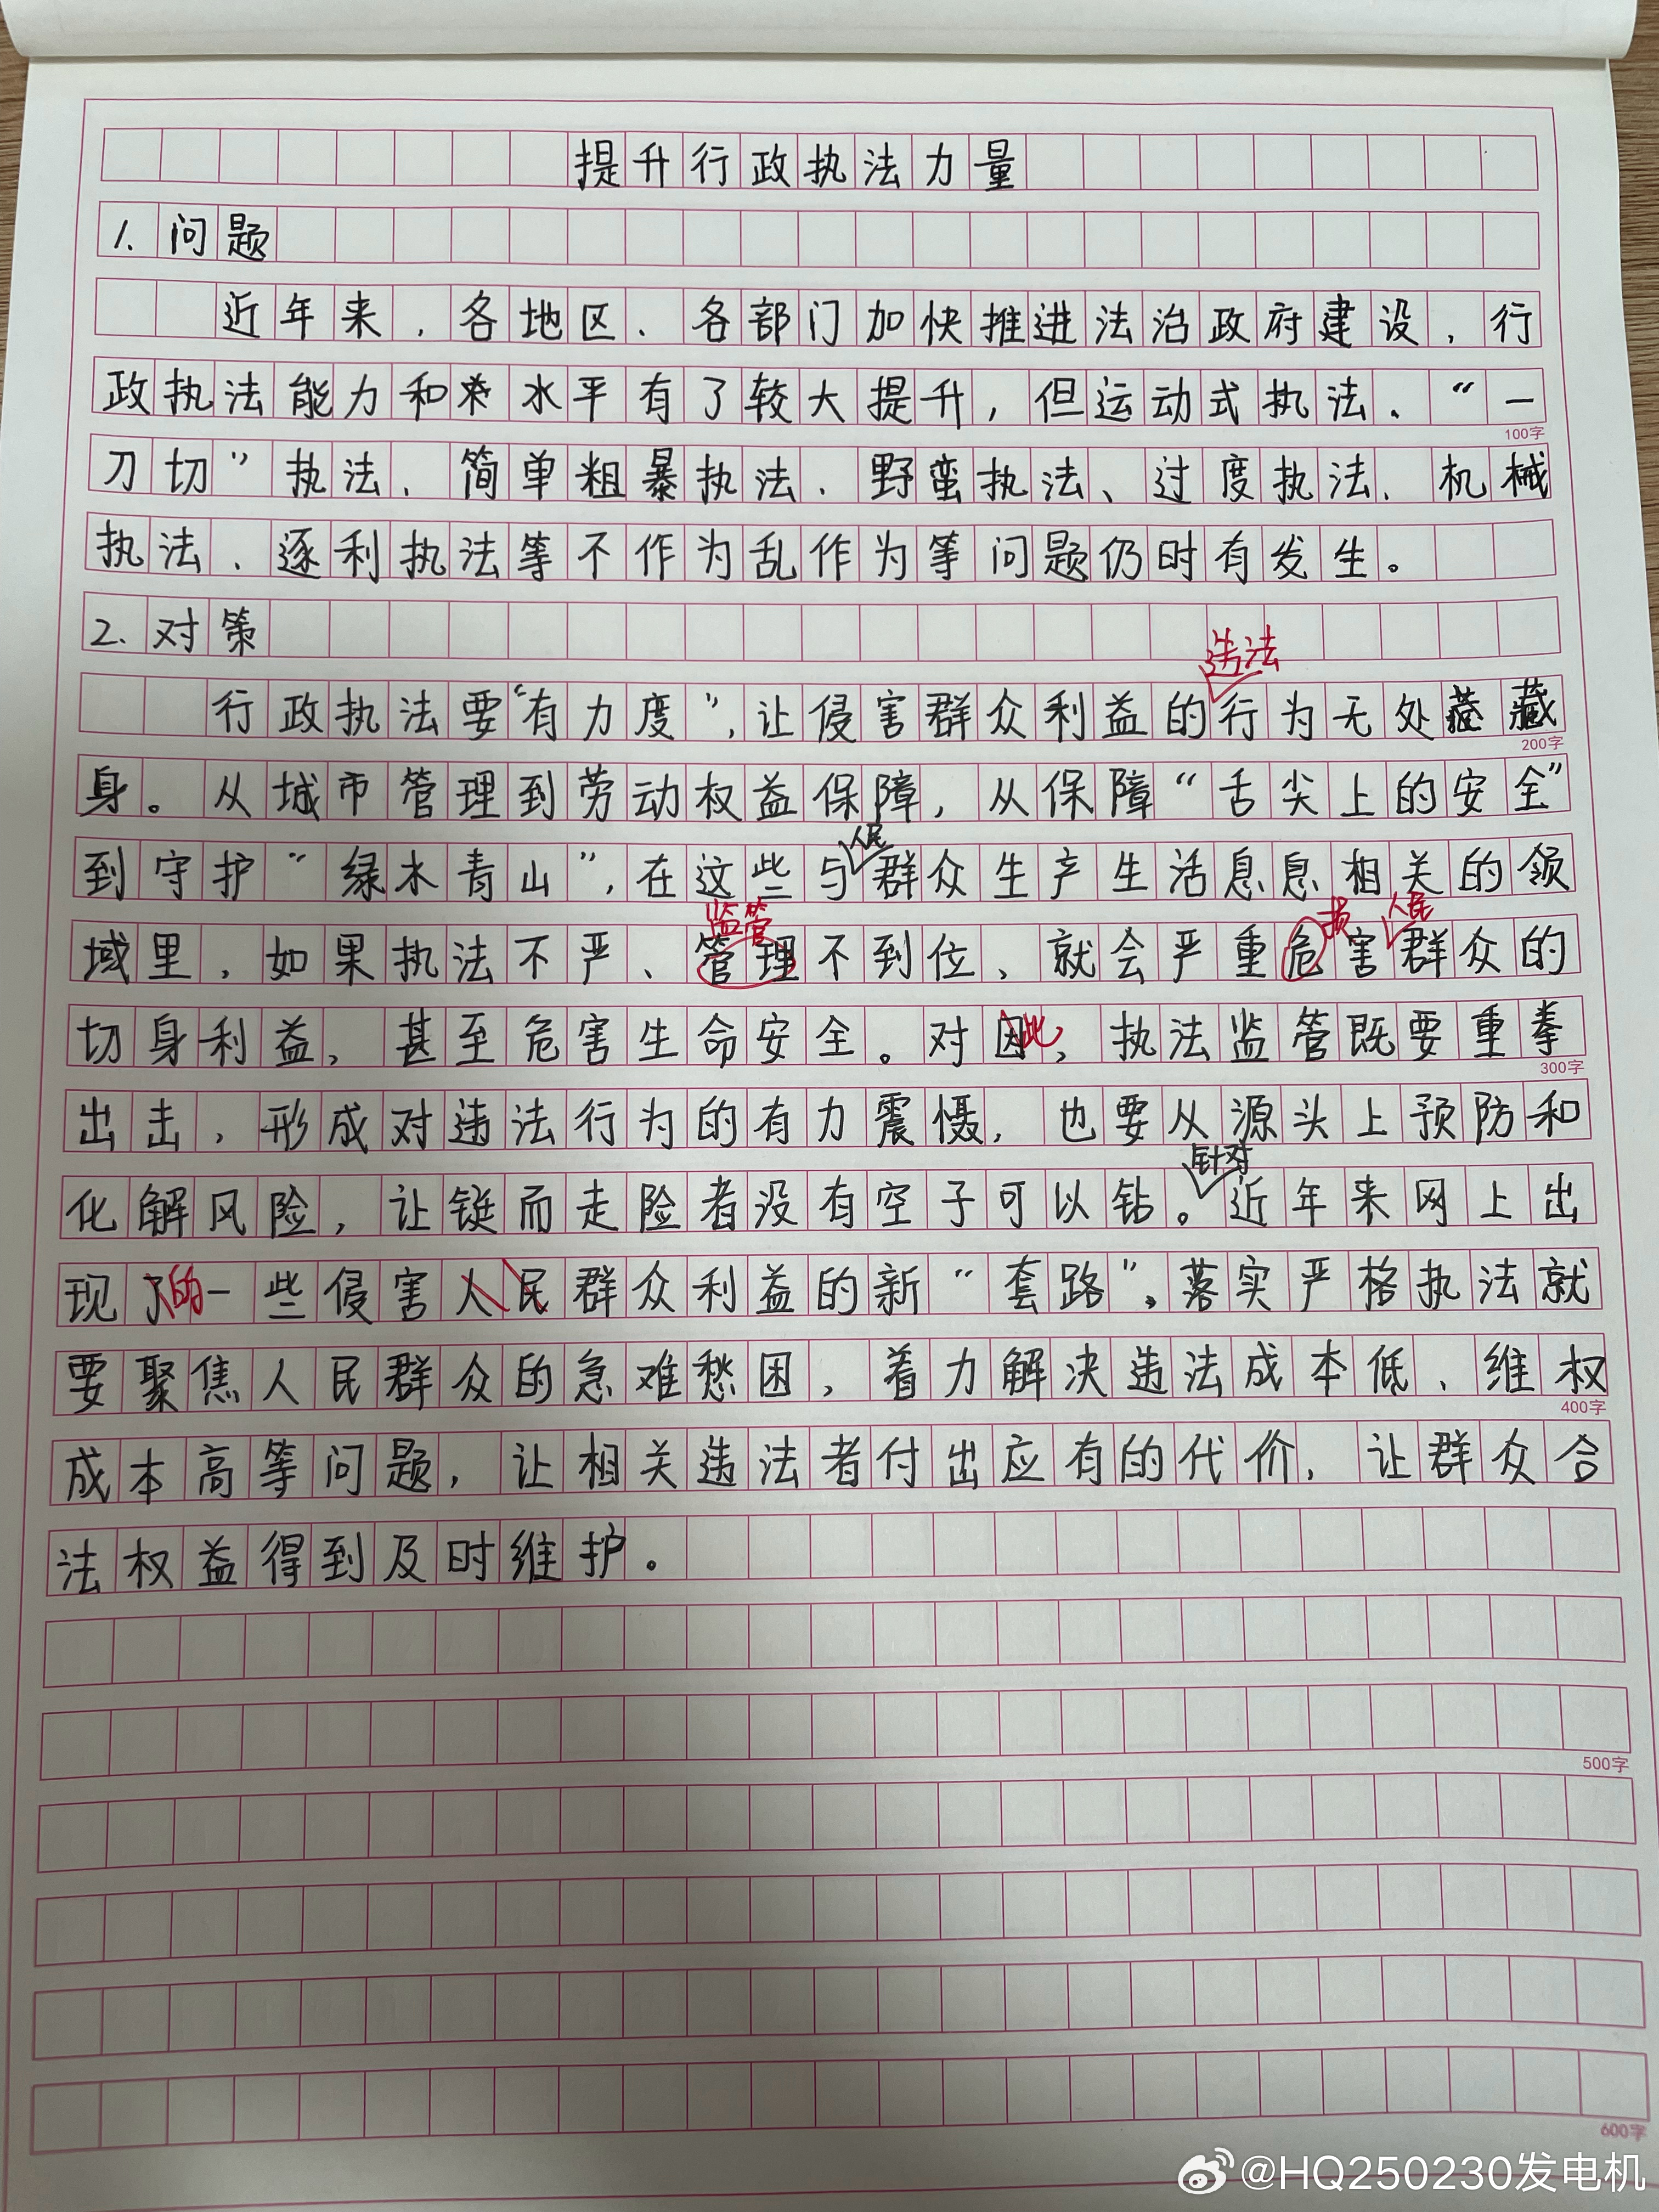 提升行政执法力量
1.问题
近年来,各地区、各部门加快推进法治政府建设,行
政执法能力和水平有了较大提升,但运动式执法、“一
100字
刀切”执法、简单粗暴执法、野蛮执法、过度执法、机械
执法、逐利执法等不作为乱作为等问题仍时有发生。
2.对策
违法
行政执法要“有力度”,让侵害群众利益的行为无处藏
200字
身。从城市管理到劳动权益保障,从保障“舌尖上的安全”
人民
到守护“绿水青山”,在这些与群众生产生活息息相关的领
监管 损 人民
域里,如果执法不严、管理不到位、就会严重危害群众的
切身利益,甚至危害生命安全。对因此,执法监管既要重拳
300字
出击,形成对违法行为的有力震慑,也要从源头上预防和
针对
化解风险,让铤而走险者没有空子可以钻。近年来网上出
现了的一些侵害人民群众利益的新“套路”。落实严格执法就
要聚焦人民群众的急难愁困,着力解决违法成本低、维权
400字
成本高等问题,让相关违法者付出应有的代价,让群众合
法权益得到及时维护。
500字
600字
@HQ250230发电机